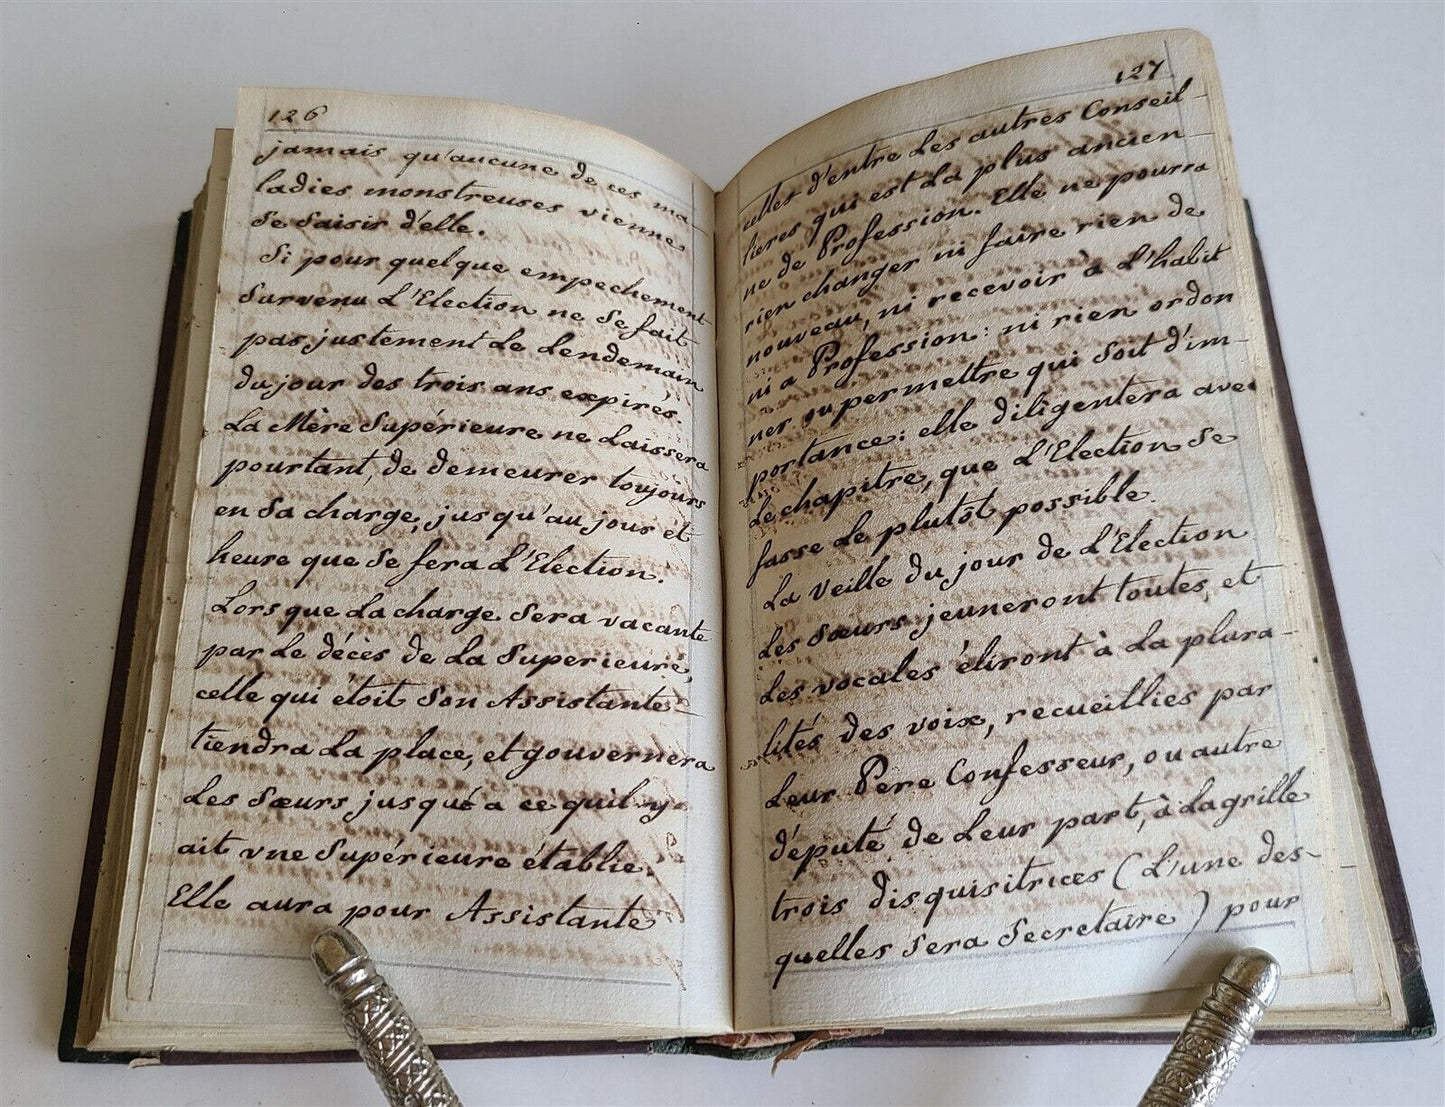 126
jamais qu'aucune de ces ma-
ladies monstreuses vienne
se saisir d'elle.
Si pour quelque empechement
survenu L'Election ne se fait
pas justement Le Lendemain
du jour des trois ans expirés.
La Mère Supérieure ne Laissera
pourtant, de demeurer toujours
en sa charge, jusqu'au jour et
heure que se fera L'Election.
Lors que La charge sera vacante
par Le décès de La Superieure,
celle qui étoit son Assistante
tiendra La place, et gouvernera
Les Sœurs jusqué a ce quil y
ait vne Supérieure établie.
Elle aura pour Assistante
127
celles d'entre Les autres Conseil-
lieres qui est La plus ancien-
ne de Profession. Elle ne pourra
rien changer ni faire rien de
nouveau, ni recevoir à L'habit
ni a Profession: ni rien ordon
ner ou permettre qui soit d'im-
portance: elle diligentera avec
Le chapitre, que L'Election se
fasse Le plutôt possible.
La veille du jour de L'Election
Les Sœurs jeuneront toutes, et
Les vocales éliront à La plura-
lités des voix, recueillies par
Leur Pere Confesseur, ou autre
député de Leur part, à La grille
trois disquisitrices (L'une des-
quelles sera Secretaire) pour